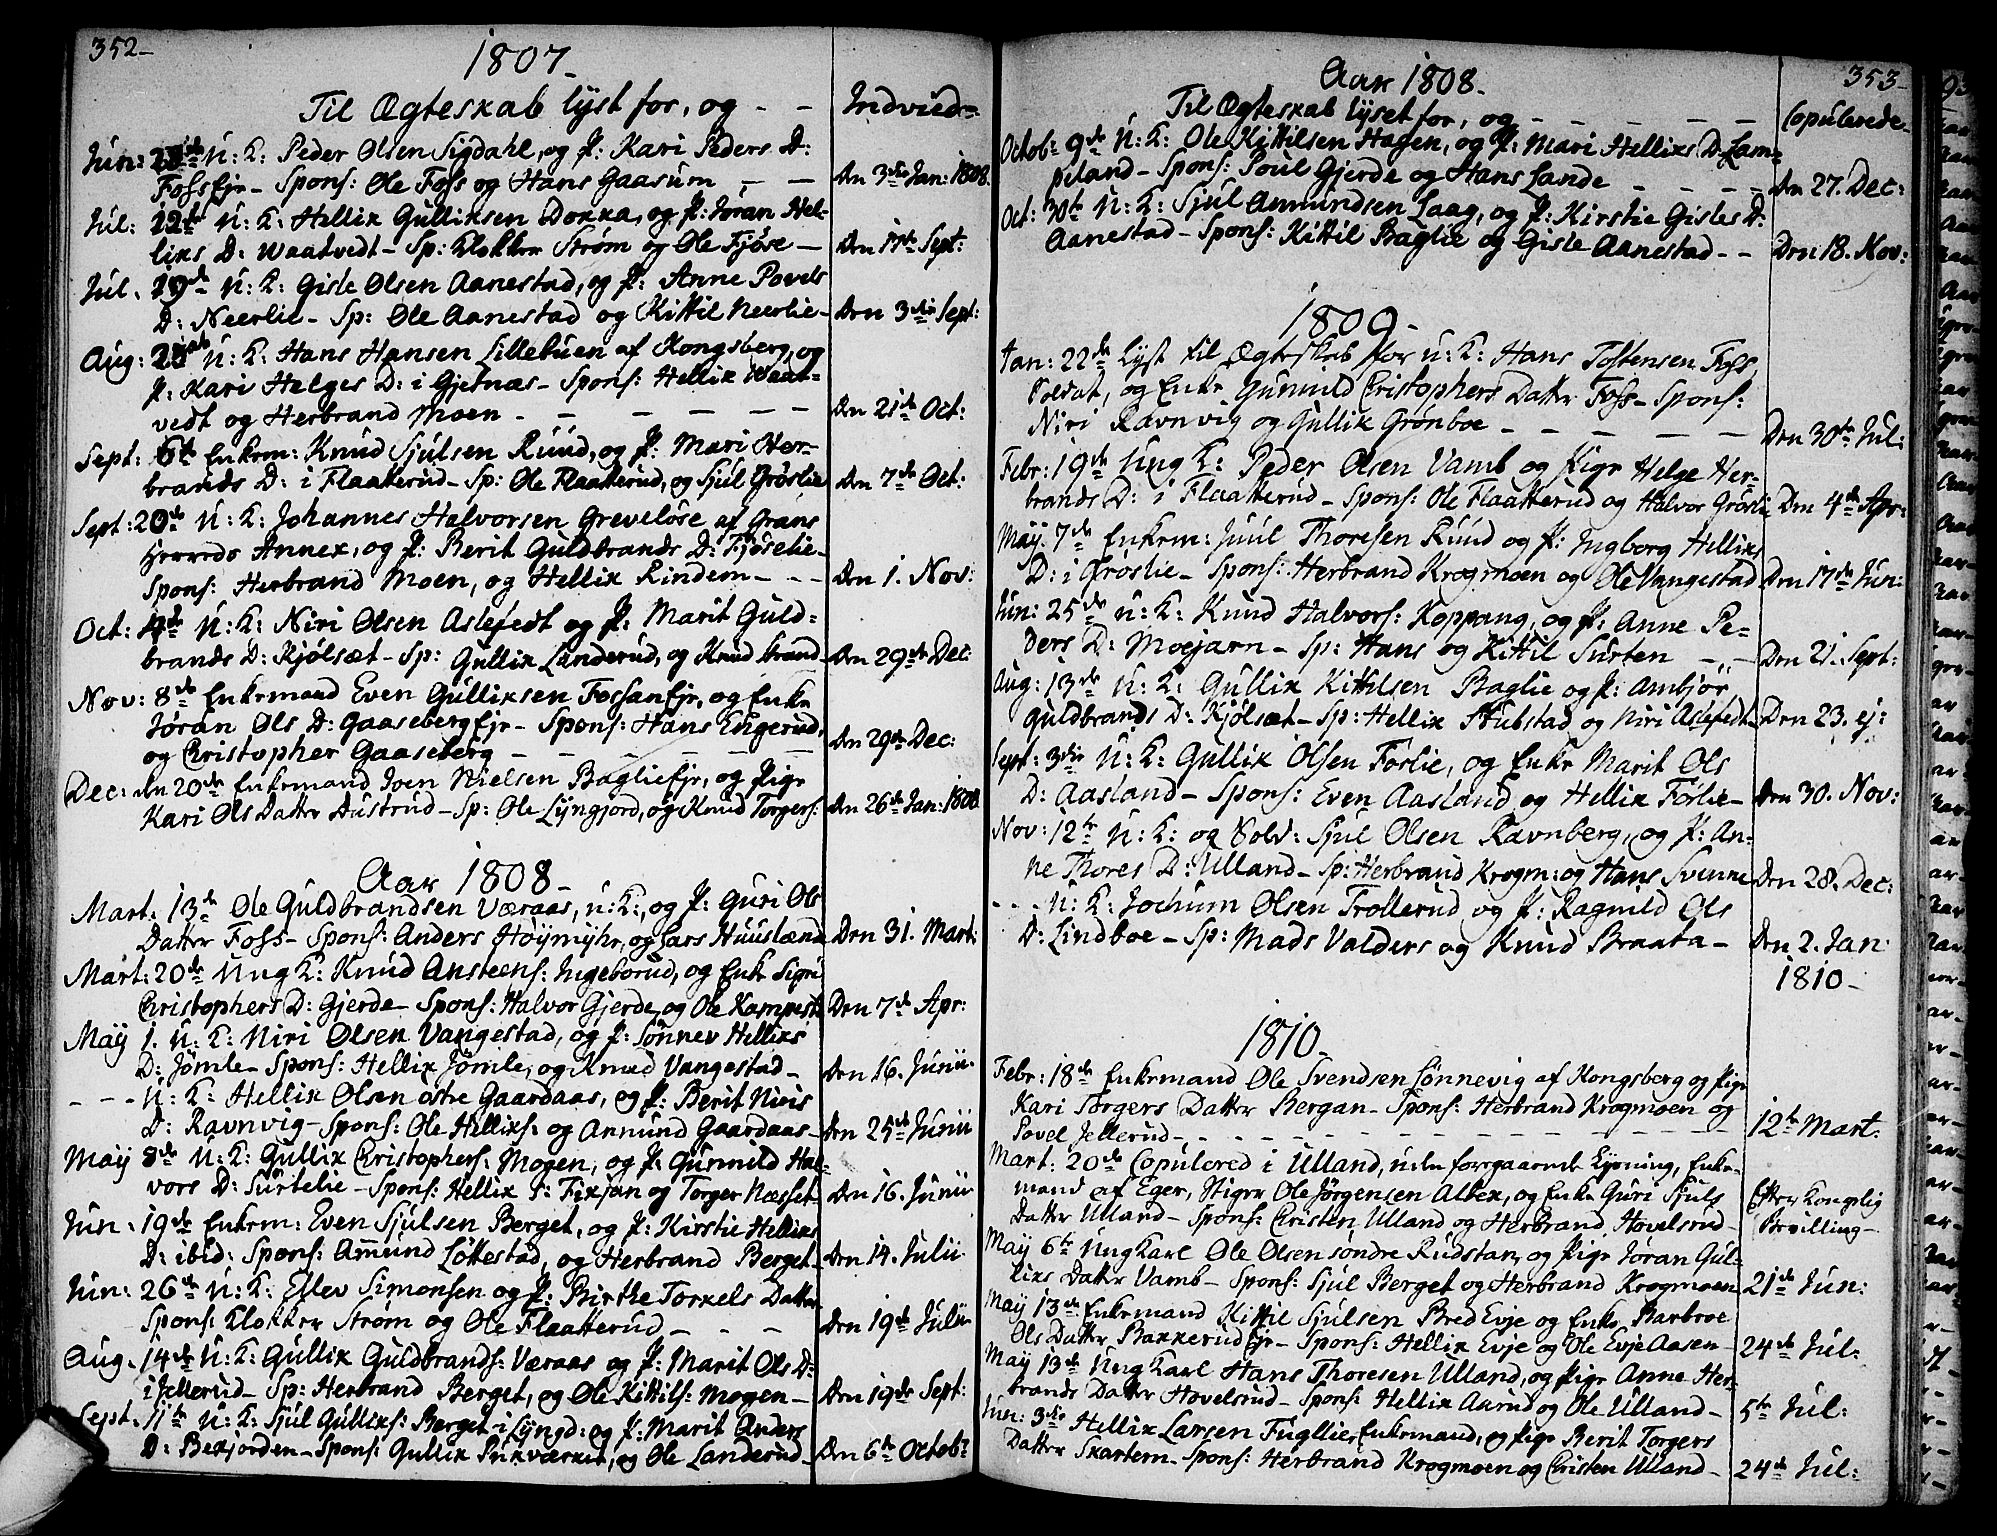 352-
1807.
Til Ægteskab lyst for, og - -
Indviede
Jun: U: K: Peder Olsen Sigdahl, og P: Kari Peders D:
FossEje - Spons: Ole Foss og Hans Gaasum - -
Den 3die Jan: 1808.
Jul: 12te U: K: Hellik Gulliksen Dokka, og P: Jøran Hel-
liks D: Waatvedt - Sp: Klokker Strøm og Ole Fjøse -
Den 17de Sept:
Jul. 19de U: K: Gisle Olsen Aanestad, og P: Anne Povels
D: Neerlie - Sp: Ole Aanestad og Kittil Neerlie -
Den 3die Sept:
Aug: U: K: Hans Hansen Lillebuen af Kongsberg, og
P: Kari Helges D: i Gjetnæs - Spons: Hellik Waat-
vedt og Herbrand Moen - - - - - -
Den 21de Oct:
Sept: 6te Enkem: Knud Sjulsen Ruud, og P: Mari Her-
brands D: i Flaatterud - Sp: Ole Flaatterud, og Sjul Grøslie
Den 7de Oct:
Sept: 20de U: K: Johannes Halvorsen Greveløse af Grans
Herreds Annex, og P: Berit Guldbrands D: Fjøselie -
Spons: Herbrand Moen, og Hellik Rindem - - -
Den 1. Nov:
Oct: 4de U: K: Niri Olsen Aslefedt og P: Marit Guld-
brands D: Kjølsæt - Sp: Gullik Landerud, og Knud Brand
Den 29de Dec:
Nov: 8de Enkemand Even Gulliksen FossanEje, og Enke
Jøran Ols D: GaasebergEje - Spons: Hans Engerud,
og Christopher Gaaseberg - - - - -
Den 29de Dec:
Dec: den 20de Enkemand Joen Nielsen BaglieEje, og Pige
Kari Ols Datter Dustrud - Sp: Ole Lyngjord, og Knud Torgers:
Den 26de Jan: 1808
Aar 1808 -
Mart. 13de Ole Guldbrandsen Væraas, u: K:, og P: Guri Ols
Datter Foss - Spons: Anders Høymyhr, og Lars Huusland
Den 31. Mart:
Mart: 20de Ung K: Knud Ansteens: Ingeborud, og Enke Sigri
Christophers D: Gjerde - Spons: Halvor Gjerde, og Ole Kampest
Den 7de Apr:
May 1. U: K: Niri Olsen Vangestad, og P: Sønnev Helliks
D: Jømle - Spons: Hellik Jømle, og Knud Vangestad -
Den 16. Junii -
- - - U: K: Hellik Olsen østre Gaardaas, og P: Berit Niris
D: Ravnvig - Spons: Ole Helliks: og Amund Gaardaas -
Den 25de Junii
May 8de U: K: Gullik Christophers: Mogen, og P: Gunnild Hal-
vors D: Surtelie - Spons: Hellik S: Fixjan og Torger Næsset
Den 16. Junii
Jun: 19de Enkem: Even Sjulsen Berget, og P: Kirstie Helliks
D: ibid: Spons: Amund Løkkestad, og Herbrand Berget -
Den 14. Julii
Jun: 26de U: K: Ellev Simonsen og P: Birthe Torkels Datter
Spons: Klokker Strøm og Ole Flaatterud - - -
Den 19de Julii
Aug. 14de U: K: Gullik Guldbrands: Væraas og P: Marit Ols D:
i Jellerud - Sp: Herbrand Berget, og Ole Kittils: Mogen -
Den 19de Sept:
Sept. 11te U: K: Sjul Gulliks: Berget i Lyngd: og P: Marit Anders
D: Bekjorden - Spons: Gullik Pukværket, og Ole Landerud -
Den 6te Octob:
353-
Aar 1808.
Til Ægteskab lyset for, og - - - - -
Copulerede
Octob: 9de U: K: Ole Kittilsen Hagen, og P: Mari Helliks D: Lam-
piland - Spons: Poul Gjerde og Hans Lande - - - -
Den 27. Dec:
Oct: 30te U: K: Sjul Amundsen Laag, og P: Kirstie Gisles D:
Aanestad - Spons: Kittil Baglie og Gisle Aanestad - -
Den 18. Nov:
1809.
Jan: 22de Lyst til Ægteskab for U: K: Hans Tostensen Foss,
Soldat, og Enke Gunnild Christophers Datter Foss - Spons:
Niri Ravnvig og Gullik Grønboe - - - - -
Den 30te Jul:
Febr: 19de Ung K: Peder Olsen Vamb og Pige Helge Her-
brands D: i Flaatterud - Spons: Ole Flaatterud og Halvor Grøsli
Den 4de Apr:
May. 7de Enkem: Juul Thoresen Ruud og P: Ingborg Helliks
D: i Grøslie - Spons: Herbrand Krogmoen og Ole Vangestad
Den 17de Jun:
Jun: 25de U: K: Knud Halvors: Koppang, og P: Anne Pe-
ders D: Moejarn - Sp: Hans og Kittil Surten - -
Den 21. Sept:
Aug: 13de U: K: Gullik Kittilsen Baglie og P: Ambjør
Guldbrands D: Kjølsæt - Sp: Hellik Stubstad og Niri Aslefedt
Den 23. ej:
Sept: 3die U: K: Gullik Olsen Førlie, og Enke Marit Ols
D: Aasland - Spons: Even Aasland, og Hellik Førlie -
Den 30. Nov:
Nov: 12te U: K: og Sold: Sjul Olsen Ravnberg, og P: An-
ne Thores D: Ulland - Sp: Herbrand Krogm: og Hans Svenne
Den 28. Dec:
- - - U: K: Jochum Olsen Trollerud og P: Ragnild Ols
D: Lindboe - Sp: Mads Valders og Knud Braata -
Den 2. Jan:
1810 -
1810.
Febr: 18de Enkemand Ole Svendsen Lønnevig af Kongsberg og Pige
Kari Torgers Datter Bergan - Spons: Herbrand Krogmoen og
Povel Jellerud - - - - - - - - - -
12te Mart:
Mart: 20de Copulered i Ulland, uden foregaaende Lysning, Enke-
mand af Eger, Stiger Ole Jørgensen Albek, og Enke Guri Sjuls
Datter Ulland - Spons: Christen Ulland og Herbrand Hovelsrud -
Efter Kongelig
Bevilling -
May 6te Ungkarl Ole Olsen søndre Rudstan, og Pige Jøran Gul-
liks Datter Vamb - Spons: Sjul Berget og Herbrand Krogmoen
21de Jun:
May 13de Enkemand Kittil Sjulsen Bred Evje og Enke Barbroe
Ols Datter BakkerudEje - Spons: Hellik Evje og Ole EvjeAasen -
24de Jul:
May 13de Ungkarl Hans Thoresen Ulland, og Pige Anne Her-
brands Datter Hovelsrud - Spons: Hellik Aarud og Ole Ulland -
5te Jul:
Jun: 3die Hellik Larsen Fugllie, Enkemand, og Pige Berit Torgers
Datter Skartern - Spons: Herbrand Krogmoen og Christen Ulland -
24de Jul: